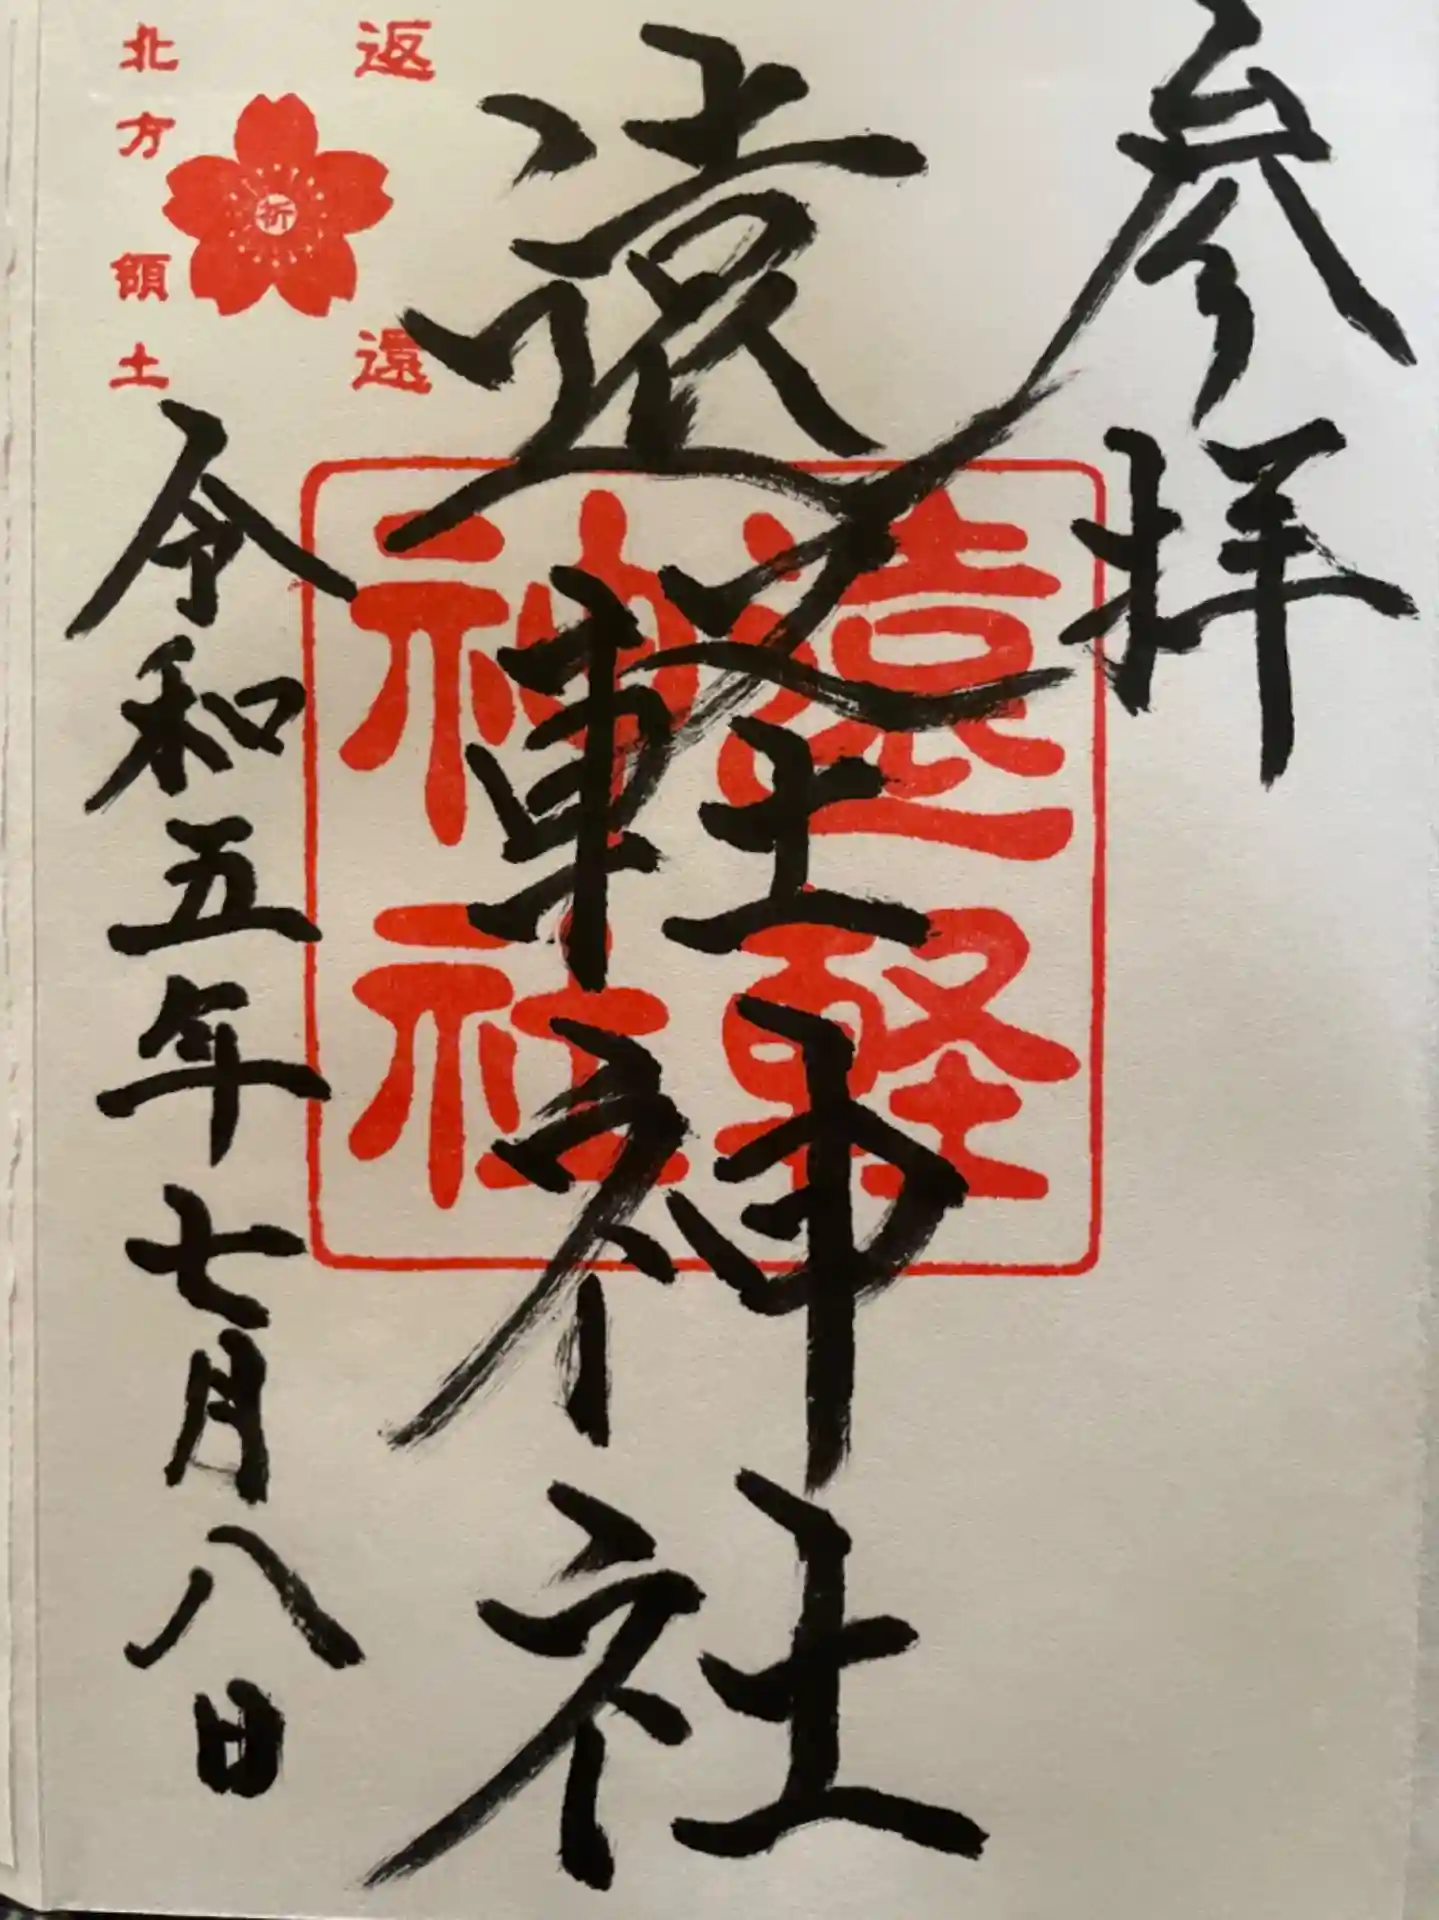 参拝
遠軽神社
遠軽
神社
返還
祈
北方領土
令和五年七月八日